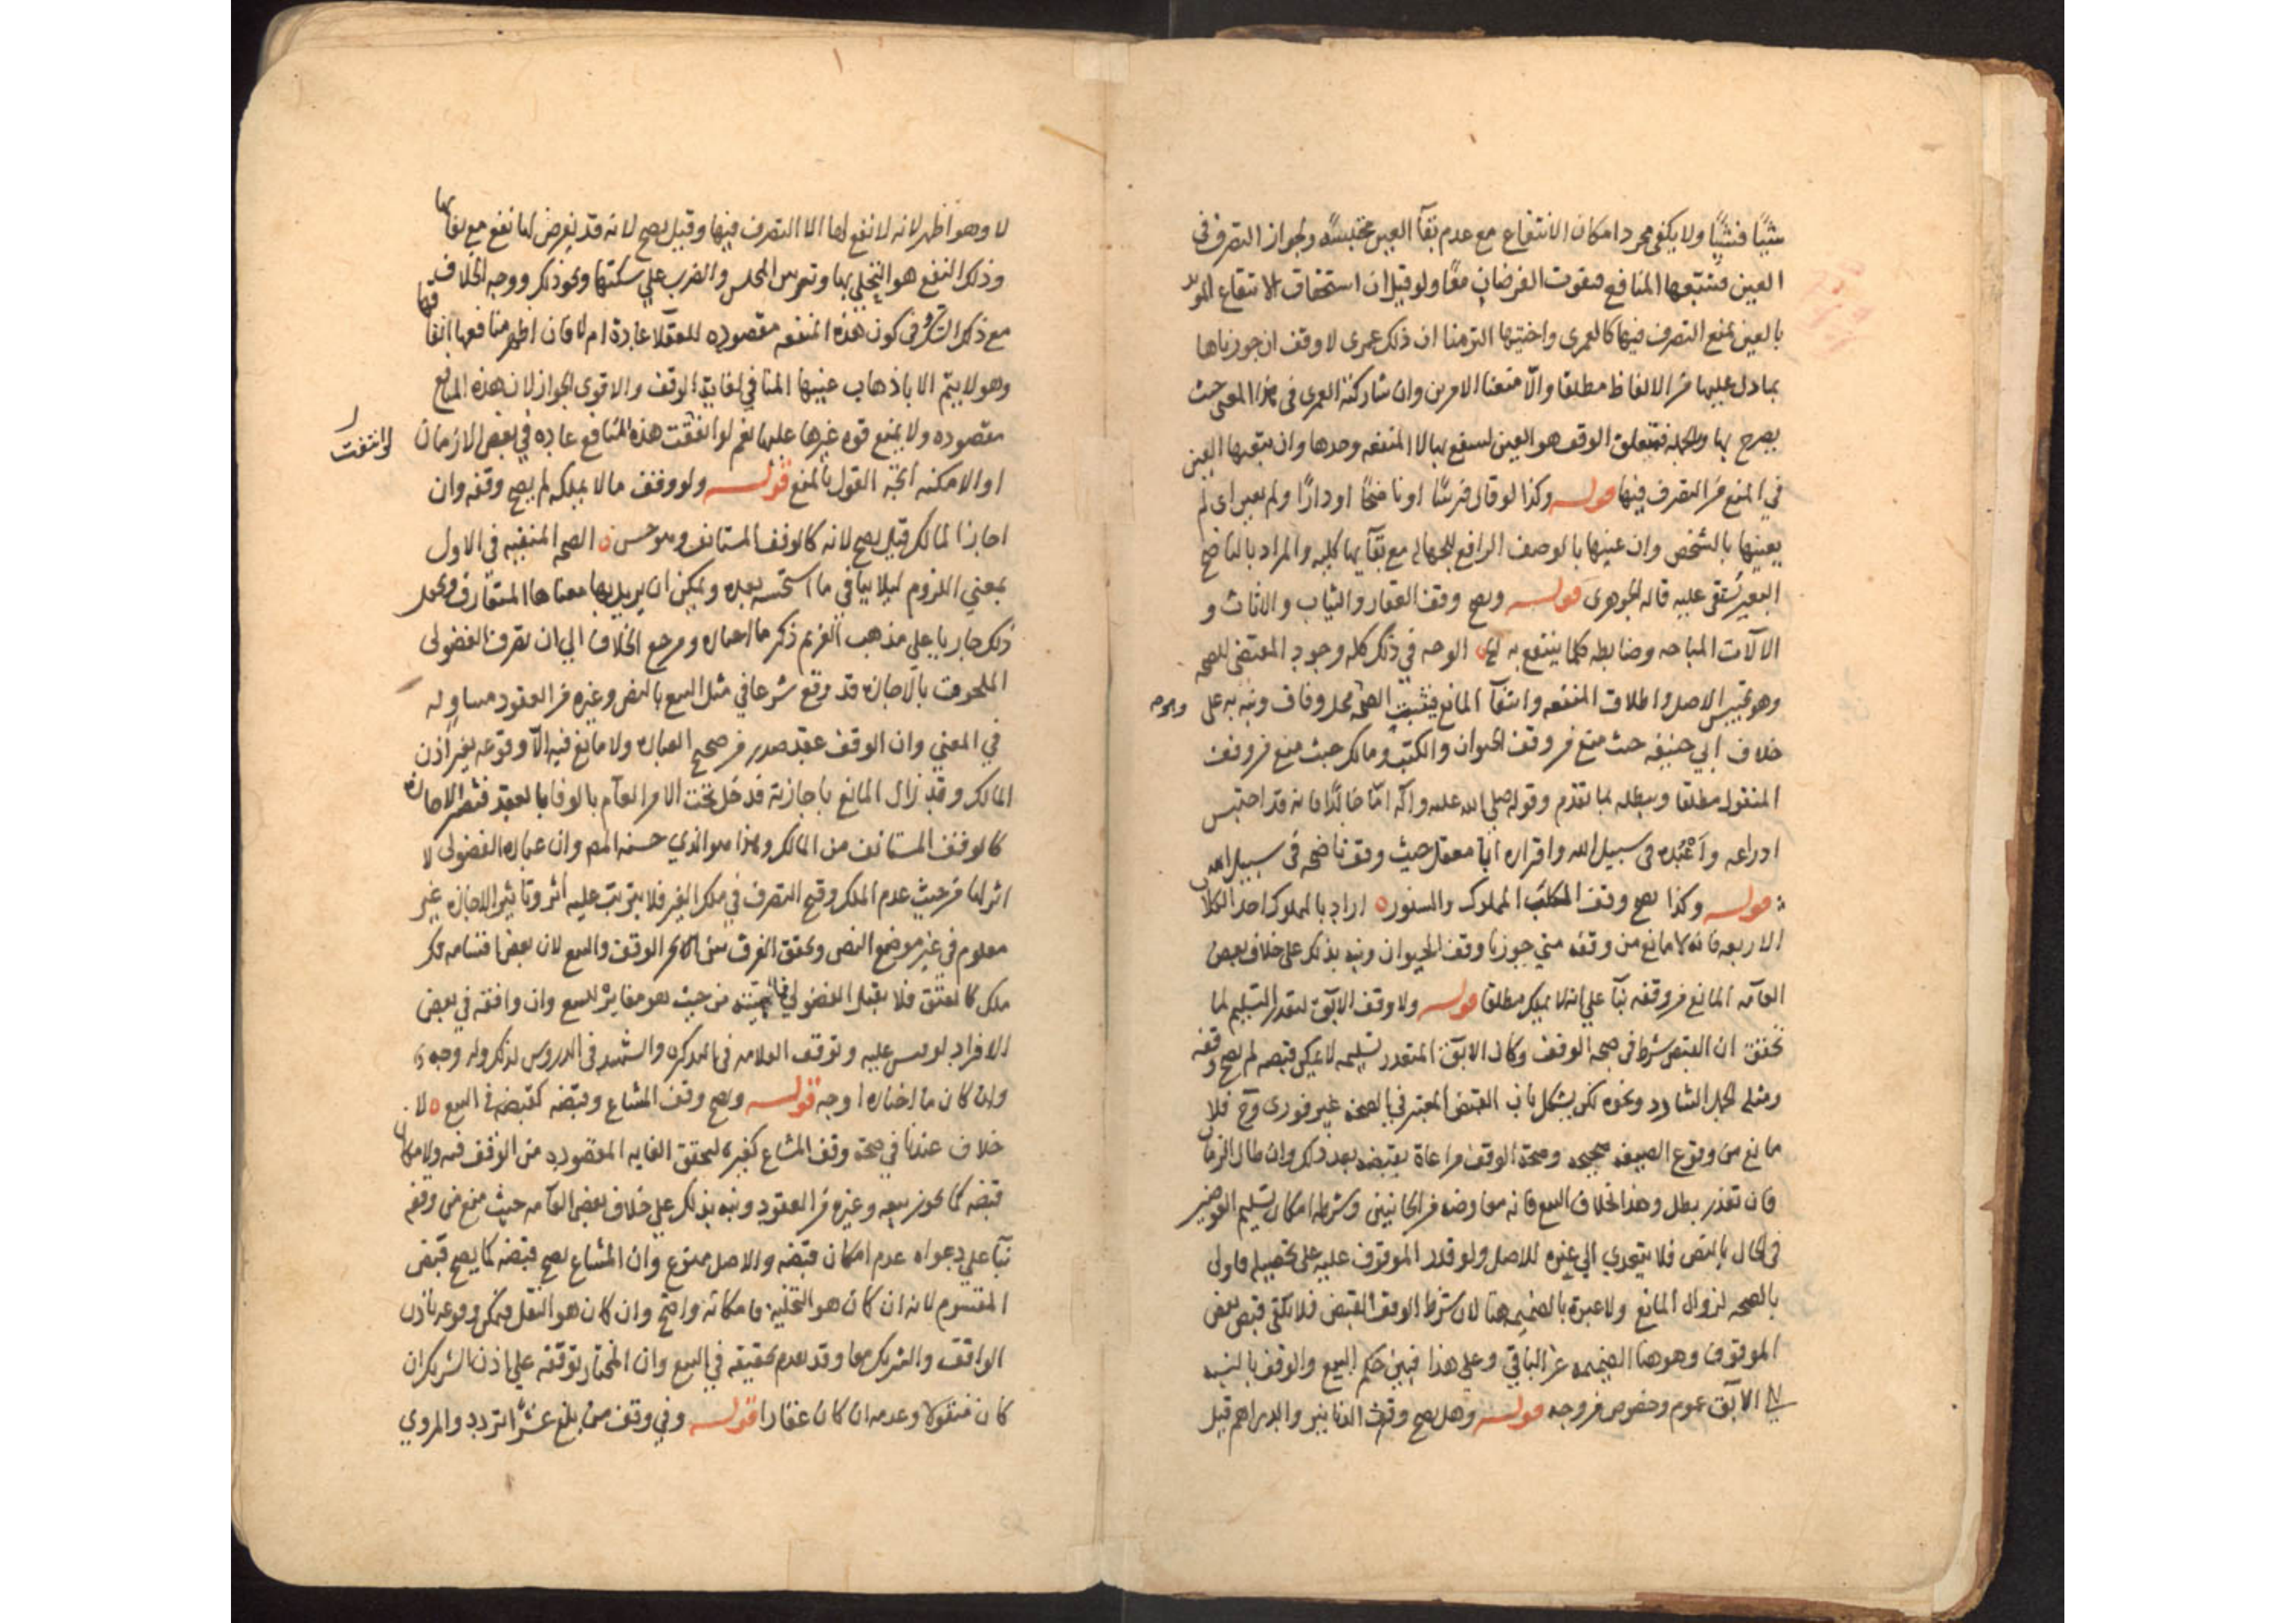 شيئًا فشيئًا ولا يكفي مجرد امكان الانتفاع مع عدم بقآ العين محتبسة ولجواز التصرف في
العين فتتبعها المنافع فيفوت الغرضان معًا ولو قيل ان استحقاق الانتفاع المؤبد
بالعين يمنع التصرف فيها كالعمرى واختيها التزمنا ان ذلك عمرى لا وقف ان جوزناها
بما دل عليها من الالفاظ مطلقا والا منعنا الامرين وان شاركته العمرى في هذا المعنى حيث
يصرح بها وبالجملة فمتعلق الوقف هو العين لينتفع بها لا المنفعه وحدها وان تبعها العين
في المنع من التصرف فيها قوله وكذا لو قال فرسًا او ناضحًا او دارًا ولم يعين اى لم
يعينها بالشخص وان عينها بالوصف الرافع للجهاله مع بقآيها كليه والمراد بالناضح
البعير يُستقى عليه قاله الجوهرى قوله ويصح وقف العقار والثياب والاثاث و
الالآت المباحه وضابطه كلما ينتفع به الخ الوجه في ذلك كله وجود المقتضي للصحه
وهو تحبيس الاصل واطلاق المنفعه وانتفآ المانع فيثبت الصحة محل وفاق ونبه به على
خلاف ابي حنيفه حيث منع من وقف الحيوان والكتب ومالك حيث منع من وقف
المنقول مطلقا ويبطله بما تقدم وقوله صلى الله عليه واله اما خالد فانه قد احتبس
ادراعه واعْتُدَه في سبيل الله واقراره ابا معقل حيث وقف ناضحه في سبيل الله
قوله وكذا يصح وقف الكلب المملوك والسنور ٥ اراد بالمملوك احد الكلاب
الاربعه فانه لا مانع من وقفه متي جوزنا وقف الحيوان ونبه بذلك على خلاف بعض
العآمه المانع من وقفه بنآ علي انه لا يملك مطلقا قوله ولا وقف الابق لتعذر التسليم لما
تحقق ان القبض شرط في صحه الوقف وكان الابق المتعذر تسليمه لا يمكن قبضه لم يصح وقفه
ومثله الجمل الشارد ونحوه لكن يشكل بان القبض المعتبر في الصحه غير فورى وح فلا
مانع من وقوع الصيغه صحيحه وصحة الوقف مراعاة بقبضه بعد ذلك وان طال الزمان
فان تعذر بطل وهذا بخلاف البيع فانه معاوضه من الجانبين وشرطه امكان تسليم العوضين
في الحال بالنص فلا يتعدي الي غيره للاصل ولو قدر الموقوف عليه على تحصيله فاولى
بالصحه لزوال المانع ولا عبرة بالضميمه هنا لان شرط الوقف القبض فلا يكفي قبض بعض
الموقوف وهو هنا الضميمه عن الباقي وعلى هذا فبين حكم البيع والوقف بالنسبه
الي الابق عموم وخصوص من وجه قوله وهل يصح وقف الدنانير والدراهم قيل
لا وهو اظهر لانه لا نفع لها الا التصرف فيها وقيل يصح لانه قد يفرض لها نفع مع بقآيها
وذلك النفع هو التحلي بها وتزيين المجلس والضرب علي سكتها ونحو ذلك ووجه الخلاف
مع ذلك الشك في كون هذه المنفعه مقصوده للعقلا عادة ام لا فان اظهر منافعها انفاقها
وهو لا يتم الا باذهاب عينها المنافي لغاية الوقف والاقوى الجواز لان هذه المنافع
مقصوده ولا يمنع قوه غيرها عليها نعم لو انتفت هذه المنافع عاده في بعض الازمان
لو انتفت
او الامكنه اتجه القول بالمنع قوله ولو وقف مالا يملكه لم يصح وقفه وان
اجاز المالك قيل يصح لانه كالوقف المستانف وهو حسن ٥ الصحه المنفيه في الاول
بمعني اللزوم ليلا ينافي ما استحسنه بعده ويمكن ان يريد بها معناها المتعارف ويجعل
ذلك جاريا علي مذهب الغير ثم ذكر ما اختاره ومرجع الخلاف الي ان تصرف الفضولى
الملحوق بالاجازه قد وقع شرعا في مثل البيع بالنص وغيره من العقود مساو له
في المعني وان الوقف عقد صدر من صحيح العباره ولا مانع فيه الا وقوعه بغير اذن
المالك وقد زال المانع باجازته فدخل تحت الامر العآم بالوفا بالعقد فتصير الاجازه
كالوقف المستانف من المالك وهذا هو الذي حسنه المص وان عباره الفضولى لا
اثر لها من حيث عدم الملك وقبح التصرف في ملك الغير فلا يترتب عليه اثر وتاثير الاجازه غير
معلوم في غير موضع النص وتحقق الفرق بين الوقف والبيع لان بعض اقسامه فك
ملك كالعتق فلا يقبل الفضولي من حيث هو مغاير للبيع وان وافقه في بعض
الافراد لو ليس عليه وتوقف العلامه في التذكره والشهيد في الدروس لذلك وله وجه
وان كان ما اختاره اوجه قوله ويصح وقف المشاع وقبضه كقبضه في البيع ٥ لا
خلاف عندنا في صحة وقف المشاع كغيره لتحقق الغايه المقصوده من الوقف فيه ولامكان
قبضه كما يجوز بيعه وغيره من العقود ونبه بذلك علي خلاف بعض العآمه حيث منع من وقفه
بنآ علي دعواه عدم امكان قبضه والاصل ممنوع وان المشاع يصح قبضه كما يصح قبض
المقسوم لانه ان كان هو التخليه فامكانه واضح وان كان هو النقل فيمكن وقوعه باذن
الواقف والشريك معا وقد تقدم تحقيقه في البيع وان المختار توقفه علي اذن الشريك ان
كان منقولا وعدمه ان كان عقارا قوله وفي وقف من بلغ عشرًا تردد والمروي